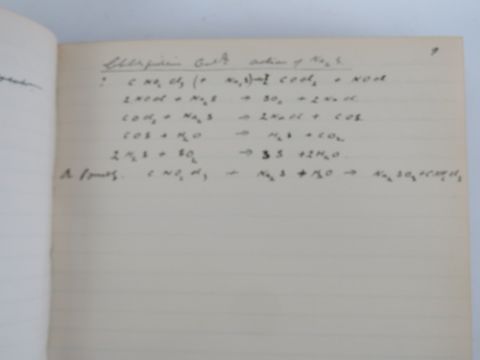 9
Chloropicrin action of Na₂S
? C NO₂ Cl₃ (+ Na₂S) → COCl₂ + NOCl
2NOCl + Na₂S → SO₂ + 2NaCl
COCl₂ + Na₂S → 2NaCl + COS
COS + H₂O → H₂S + CO₂
2H₂S + SO₂ → 3S + 2H₂O
Or C NO₂ Cl₃ + Na₂S + H₂O → Na₂SO₃ +